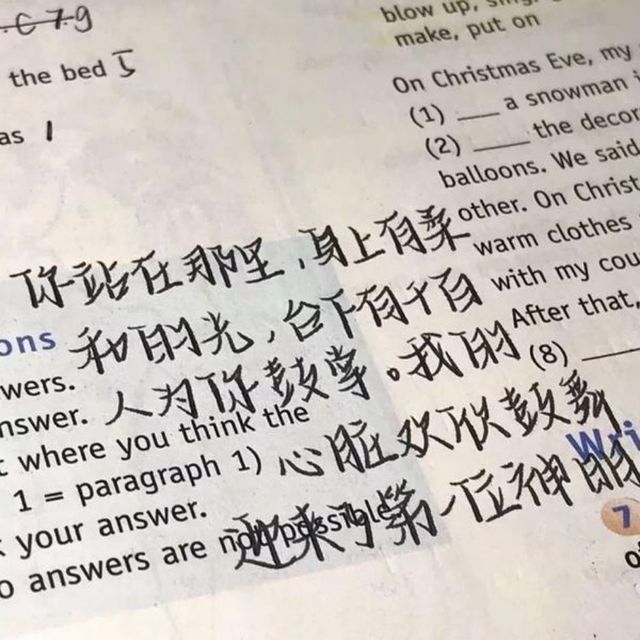 C 7.9
the bed 5
as 1
blow up, sing,
make, put on
On Christmas Eve, my
(1) ___ a snowman i
(2) ___ the decor
balloons. We said
other. On Christ
warm clothes
with my cou
After that.
(8) ___
你站在那里,身上有柔
和的光,台下有千百
人为你鼓掌。我的
心脏欢欣鼓舞
迎来了第一位神明
ons
wers.
nswer.
t where you think the
1 = paragraph 1)
k your answer.
o answers are not possible.
Wri
7